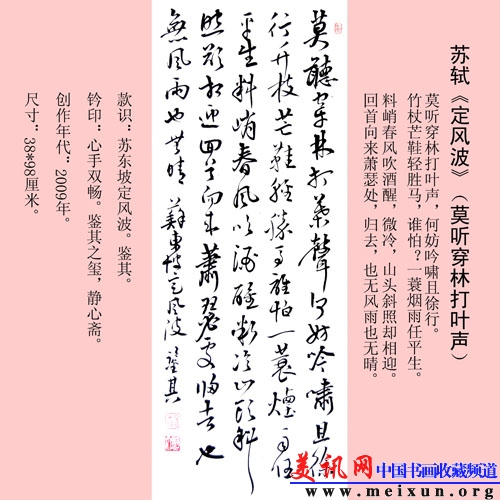 苏轼《定风波》（莫听穿林打叶声）
莫听穿林打叶声，何妨吟啸且徐行。
竹杖芒鞋轻胜马，谁怕？一蓑烟雨任平生。
料峭春风吹酒醒，微冷，山头斜照却相迎。
回首向来萧瑟处，归去，也无风雨也无晴。
莫聽穿林打葉聲何妨吟嘯且徐
行竹杖芒鞋輕勝馬誰怕一蓑煙雨任
平生料峭春風吹酒醒微冷山頭斜
照却相迎回首向來蕭瑟處歸去也
無風雨也無晴 蘇東坡定風波 鑒其
款识：苏东坡定风波。鉴其。
钤印：心手双畅。鉴其之玺，静心斋。
创作年代：2009年。
尺寸：38*98厘米。
美讯网中国书画收藏频道
www.meixun.org